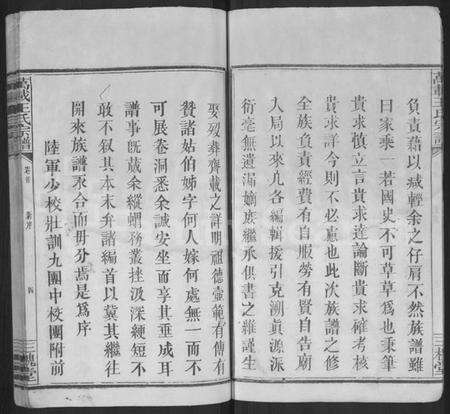 萬載王氏宗譜
三槐堂
負責藉以減輕余之仔肩不然族譜雖
曰家乘一若國史不可草草爲也秉筆
貴求慎立言貴求達論斷貴求確考核
貴求詳今則不必慮也此次族譜之修
全族負責經費有自服勞有賢自告廟
入局以來凡各編輯援引克溯眞源派
衍毫無遺漏嫡族繼承俱書之雖謹生
娶歿葬齊載之詳明祖德壼範有傳有
贊諸姑伯姊字何人嫁何處無一而不
可展卷洞悉余誠安坐而享其垂成耳
譜事既蕆余縱蝟務叢挫汲深綆短不
敢不叙其本末弁諸編首以冀其繼往
開來族譜永合而毋分焉是爲序
陸軍少校壯訓九團中校團附前
萬載王氏宗譜
卷首
新序
四
三槐堂